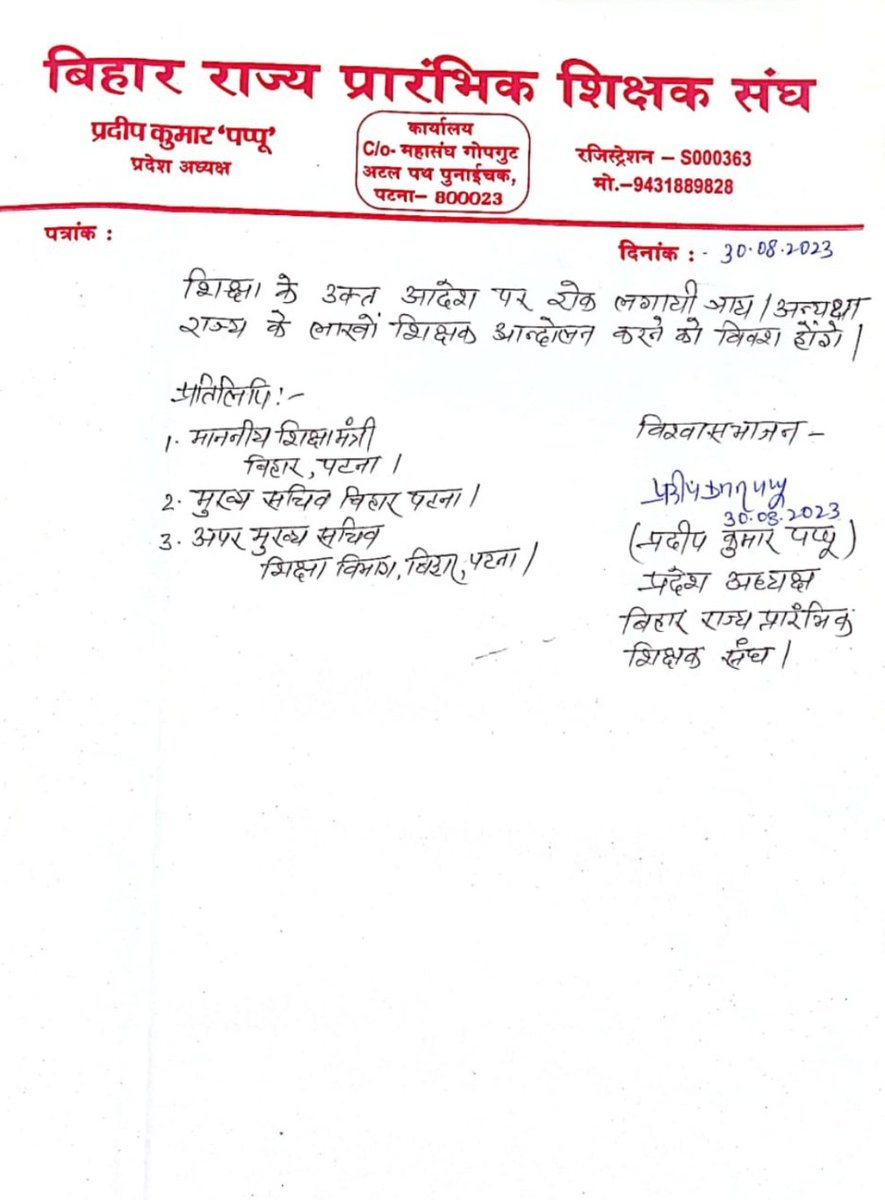 बिहार राज्य प्रारंभिक शिक्षक संघ
प्रदीप कुमार 'पप्पू'
प्रदेश अध्यक्ष
कार्यालय
C/o- महासंघ गोपगुट
अटल पथ पुनाईचक,
पटना– 800023
रजिस्ट्रेशन – S000363
मो.–9431889828
पत्रांक :
दिनांक :- 30.08.2023
शिक्षा के उक्त आदेश पर रोक लगायी जाय । अन्यथा
राज्य के लाखों शिक्षक आन्दोलन करने को विवश होंगे ।
प्रतिलिपि:-
1. माननीय शिक्षामंत्री
बिहार, पटना ।
2. मुख्य सचिव बिहार पटना ।
3. अपर मुख्य सचिव
शिक्षा विभाग, बिहार, पटना ।
विश्वासभाजन –
30.08.2023
(प्रदीप कुमार पप्पू)
प्रदेश अध्यक्ष
बिहार राज्य प्रारंभिक
शिक्षक संघ ।